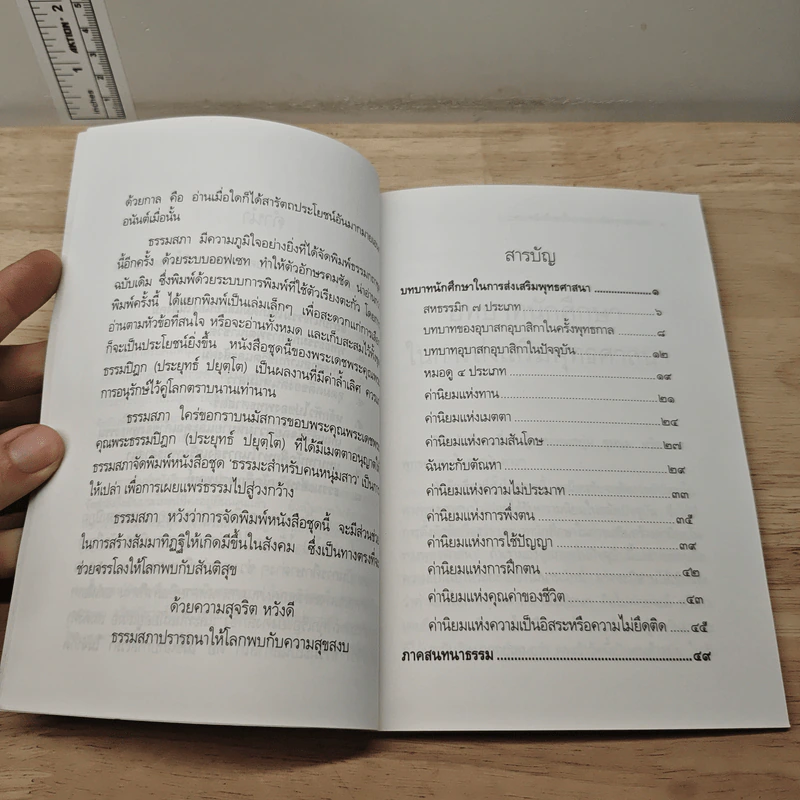 inches
1
2
AKTION
3
4
5
ด้วยกาล คือ อ่านเมื่อใดก็ได้สารัตถประโยชน์อันมากมาย
อนันต์เมื่อนั้น
ธรรมสภา มีความภูมิใจอย่างยิ่งที่ได้จัดพิมพ์
นี้อีกครั้ง ด้วยระบบออฟเซท ทำให้ตัวอักษรคมชัด น่าอ่าน
ฉบับเดิม ซึ่งพิมพ์ด้วยระบบการพิมพ์ที่ใช้ตัวเรียงตะกั่ว
พิมพ์ครั้งนี้ ได้แยกพิมพ์เป็นเล่มเล็กๆ เพื่อสะดวกแก่การ
อ่านตามหัวข้อที่สนใจ หรือจะอ่านทั้งหมด และเก็บสะสมไว้
ก็จะเป็นประโยชน์ยิ่งขึ้น หนังสือชุดนี้ของพระเดชพระคุณ
ธรรมปิฎก (ประยุทธ์ ปยุตฺโต) เป็นผลงานที่มีค่าล้ำเลิศ
การอนุรักษ์ไว้คู่โลกตราบนานเท่านาน
ธรรมสภา ใคร่ขอกราบนมัสการขอบพระคุณพระเดช
คุณพระธรรมปิฎก (ประยุทธ์ ปยุตฺโต) ที่ได้มีเมตตาอนุญาต
ธรรมสภาจัดพิมพ์หนังสือชุด 'ธรรมะสำหรับคนหนุ่มสาว'
ให้เปล่า เพื่อการเผยแพร่ธรรมไปสู่วงกว้าง
ธรรมสภา หวังว่าการจัดพิมพ์หนังสือชุดนี้ จะมีส่วน
ในการสร้างสัมมาทิฏฐิให้เกิดมีขึ้นในสังคม ซึ่งเป็นทางตรงที่จะ
ช่วยจรรโลงให้โลกพบกับสันติสุข
ด้วยความสุจริต หวังดี
ธรรมสภาปรารถนาให้โลกพบกับความสุขสงบ
สารบัญ
บทบาทนักศึกษาในการส่งเสริมพุทธศาสนา ....................๑
สหธรรมิก ๗ ประเภท ....................๖
บทบาทของอุบาสกอุบาสิกาในครั้งพุทธกาล ....................๘
บทบาทอุบาสกอุบาสิกาในปัจจุบัน ....................๑๒
หมอดู ๔ ประเภท ....................๑๙
ค่านิยมแห่งทาน ....................๒๑
ค่านิยมแห่งเมตตา ....................๒๔
ค่านิยมแห่งความสันโดษ ....................๒๗
ฉันทะกับตัณหา ....................๒๙
ค่านิยมแห่งความไม่ประมาท ....................๓๓
ค่านิยมแห่งการพึ่งตน ....................๓๕
ค่านิยมแห่งการใช้ปัญญา ....................๓๙
ค่านิยมแห่งการฝึกตน ....................๔๒
ค่านิยมแห่งคุณค่าของชีวิต ....................๔๓
ค่านิยมแห่งความเป็นอิสระหรือความไม่ยึดติด ......๔๕
ภาคสนทนาธรรม ....................๔๙